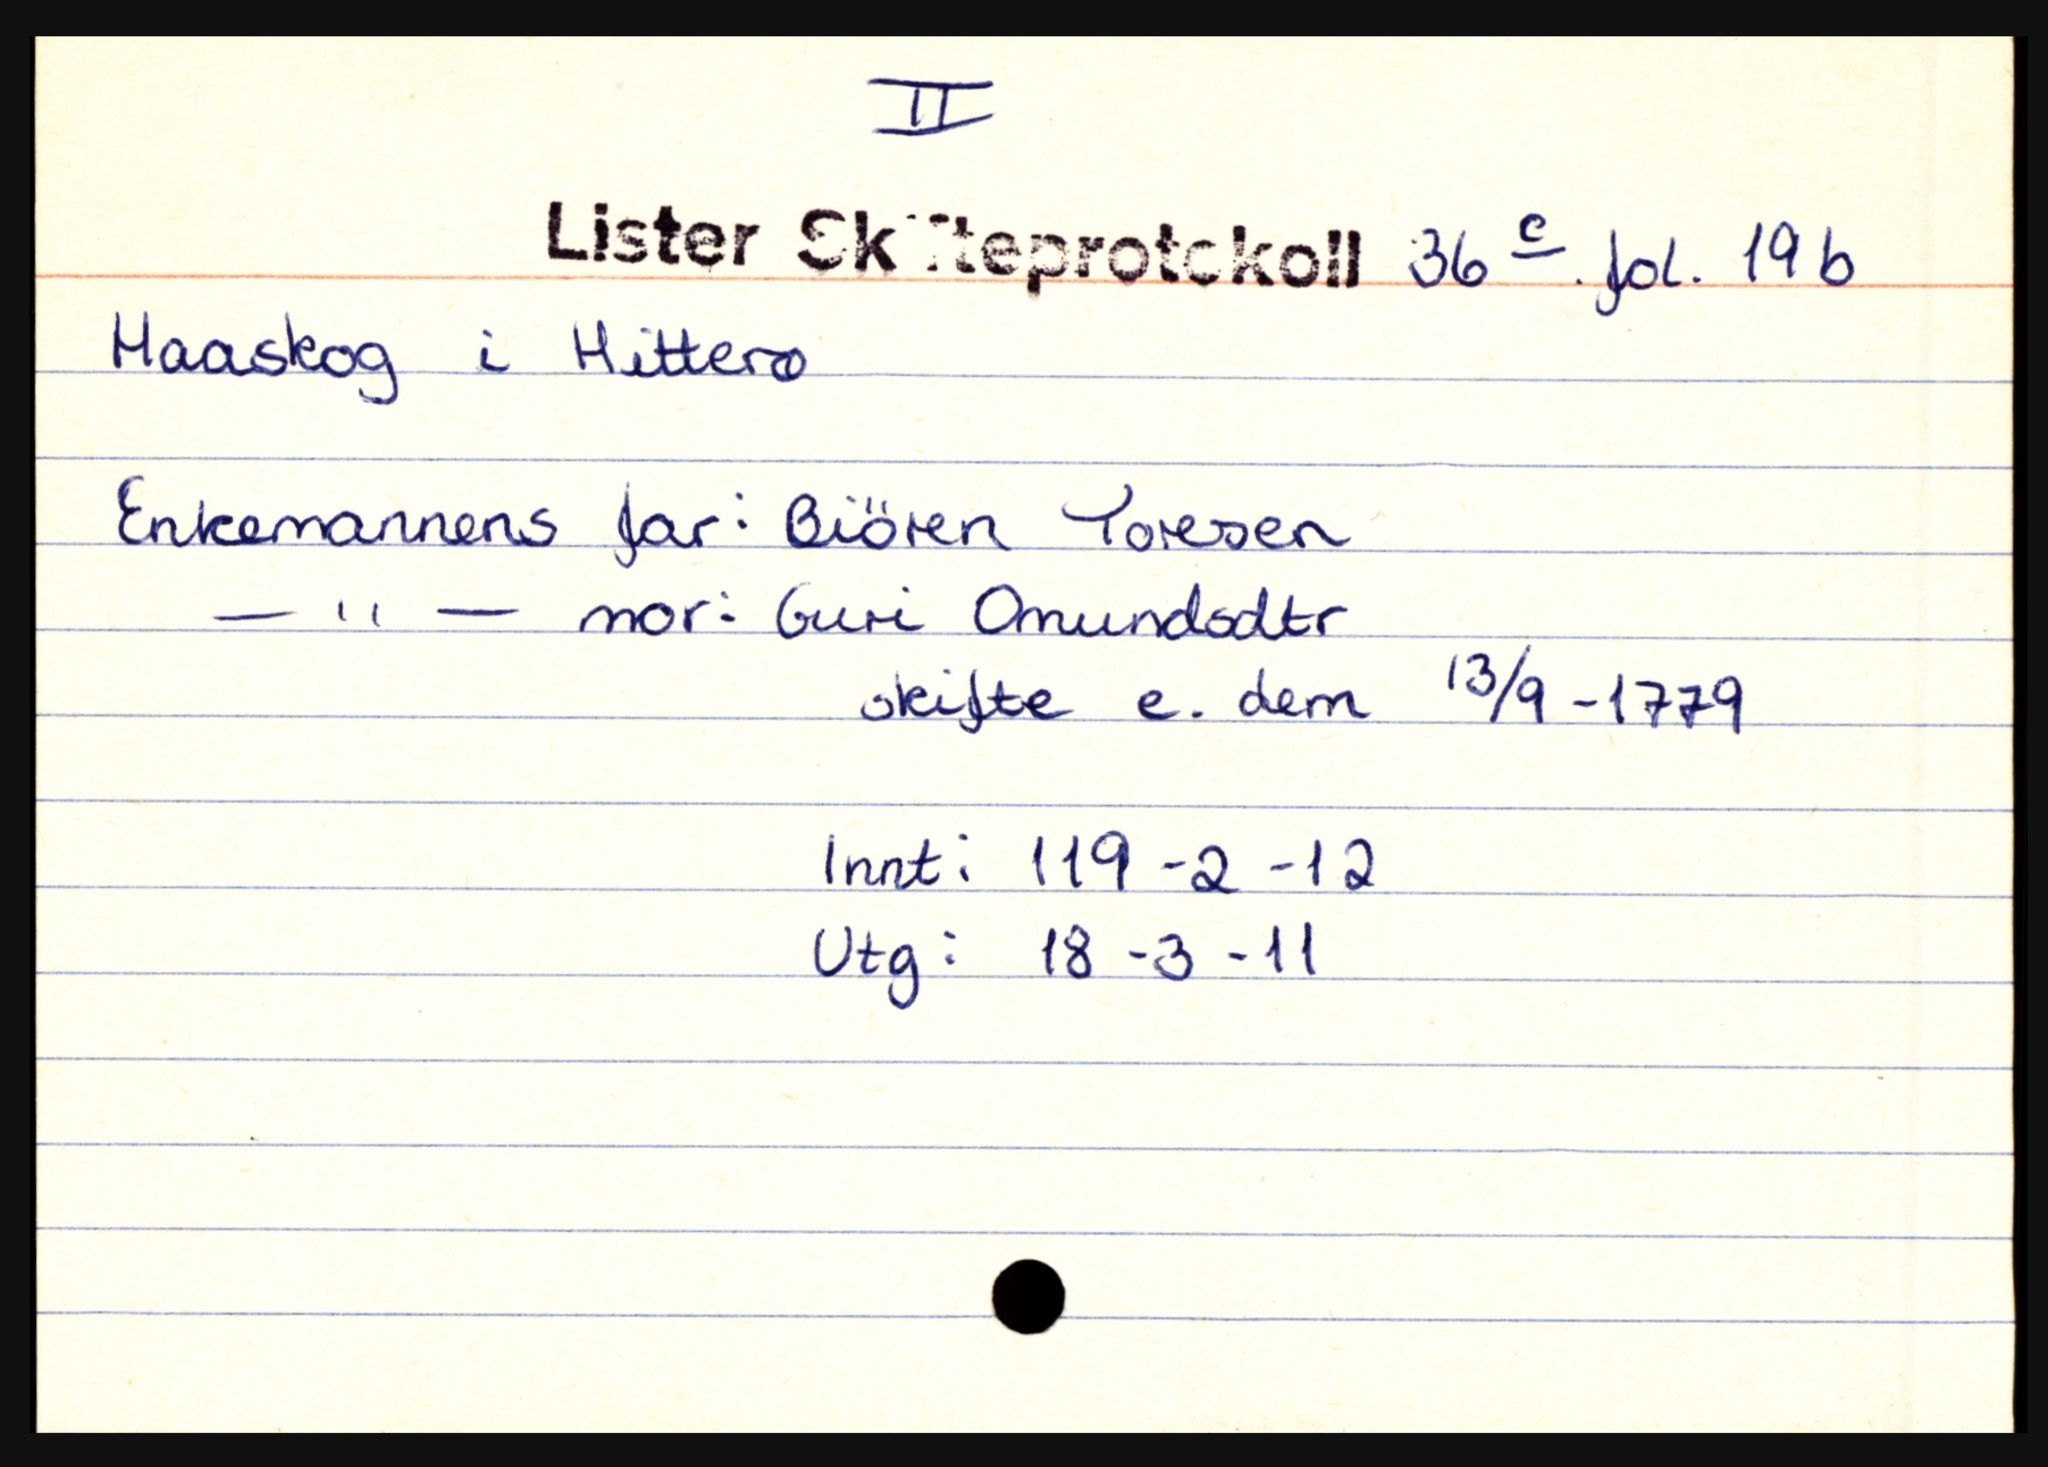 II
Lister Skifteprotokoll 36 c. fol. 19 b
Haaskog i Hitterø
Enkemannens far: Biören Toresen
— " — mor: Guri Omundsdtr
skifte e. dem 13/9 - 1779
Innt: 119 - 2 - 12
Utg: 18 - 3 - 11